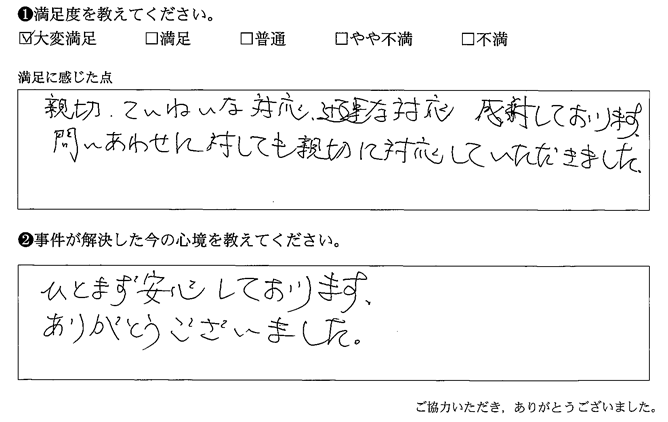 ❶満足度を教えてください。
☑大変満足 □満足 □普通 □やや不満 □不満
満足に感じた点
親切、ていねいな対応、迅速な対応 感謝しております。
問いあわせに対しても親切に対応していただきました。
❷事件が解決した今の心境を教えてください。
ひとまず安心しております、
ありがとうございました。
ご協力いただき，ありがとうございました。